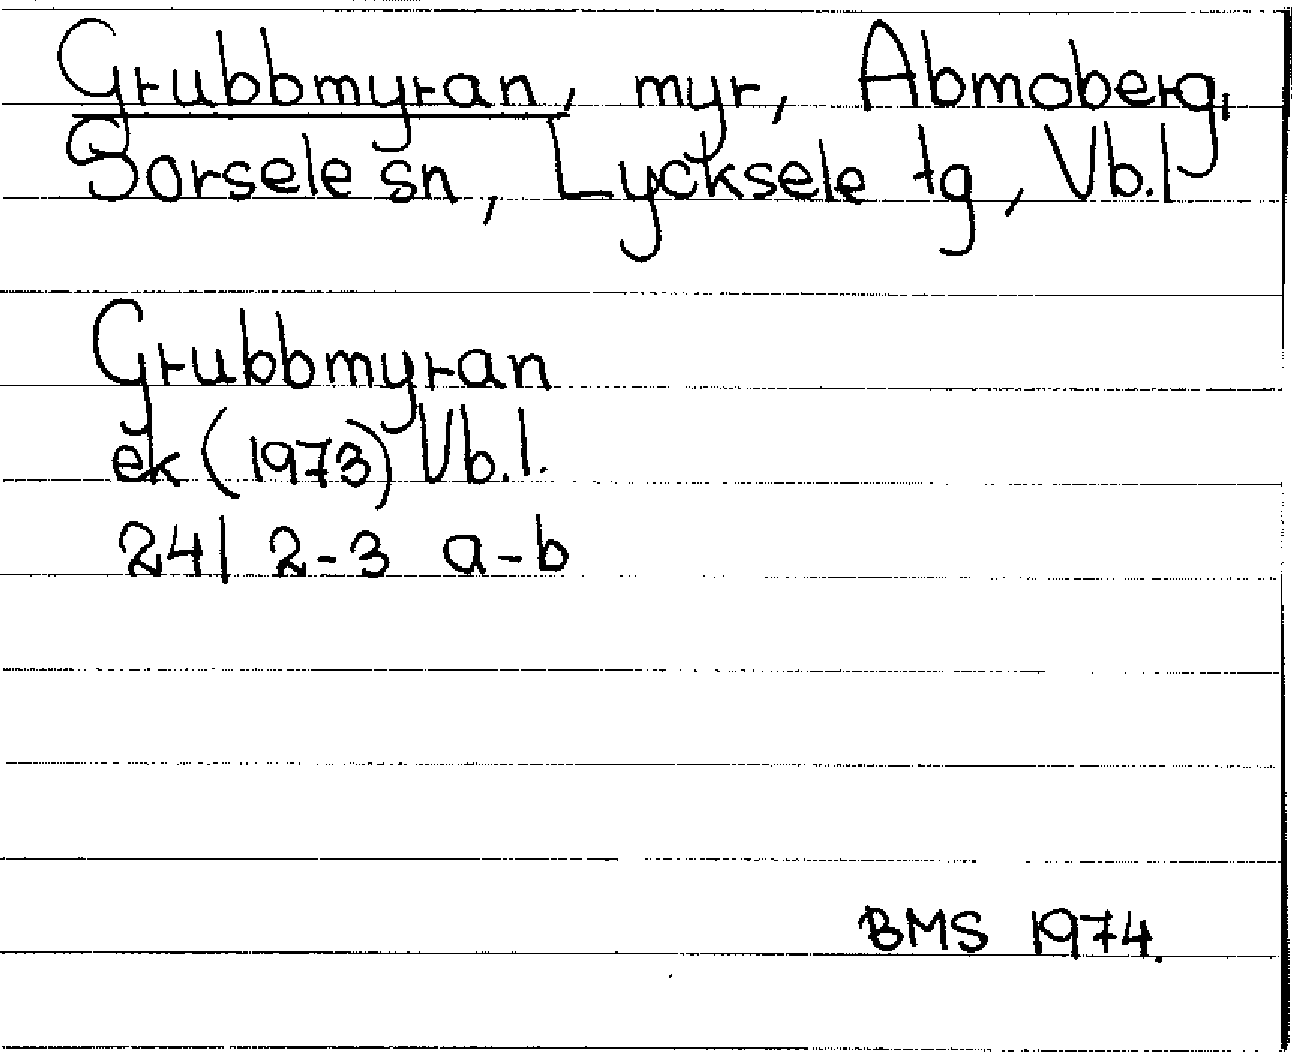 Grubbmyran, myr, Abmoberg,
Sorsele sn, Lycksele tg, Vb.l
Grubbmyran
ek (1973) Vb.l.
24I 2-3 a-b
BMS 1974.